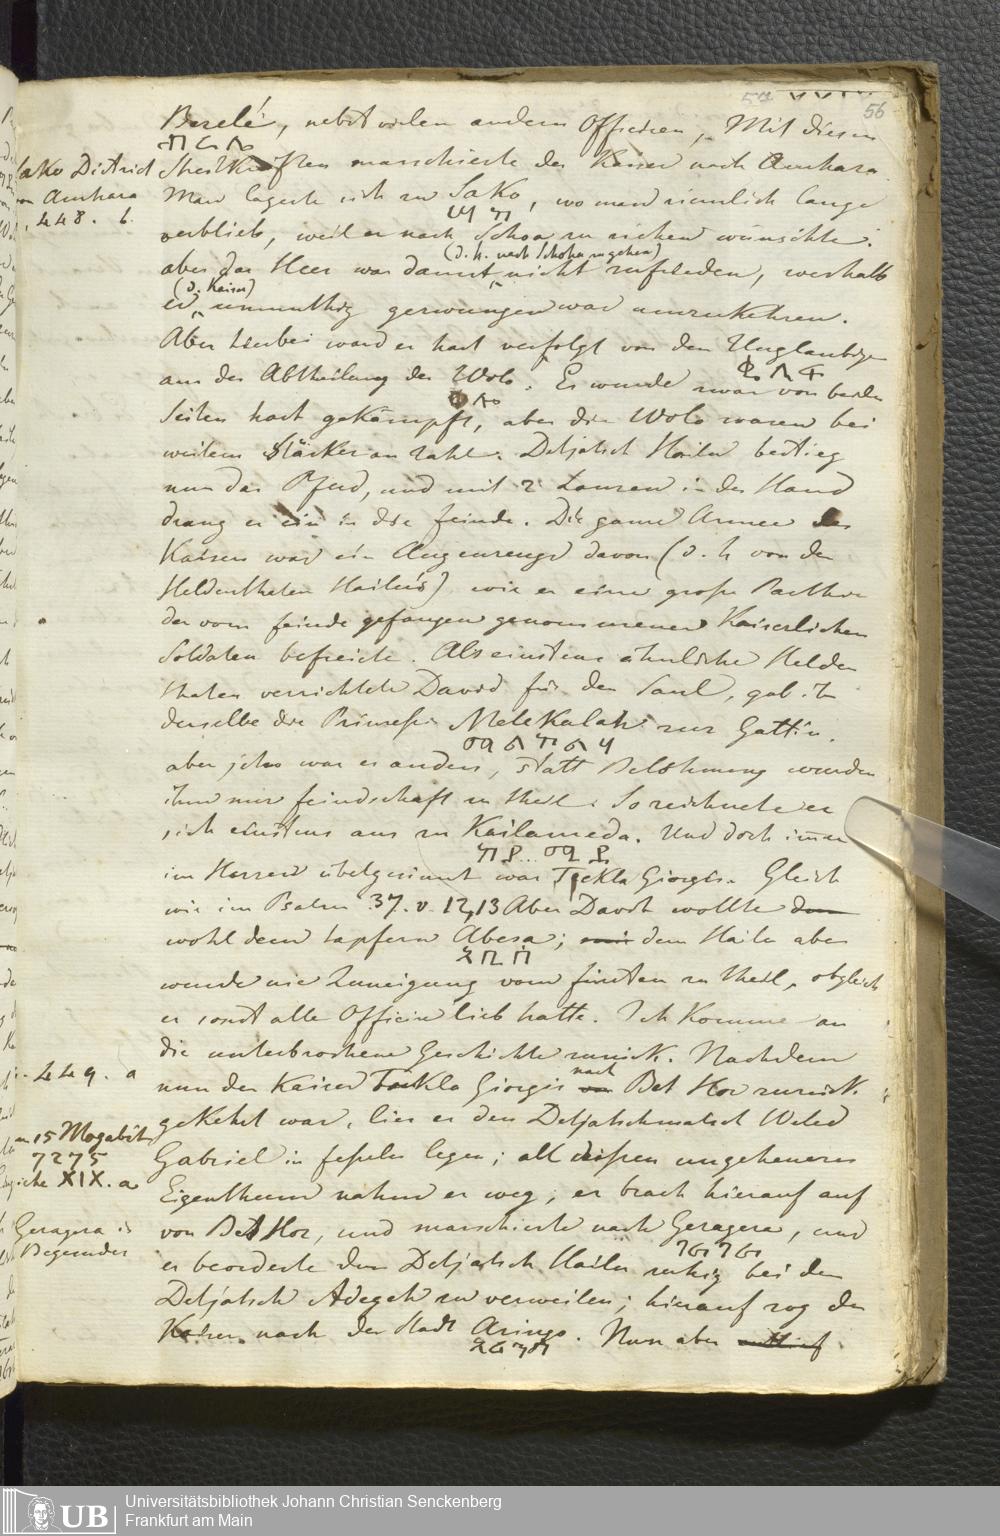 54 56
Berelé, nebst vielen andern Officiren, Mit diesen
በርሌ
Streitkräften marschierte der Kaiser nach Amhara.
Man lagerte sich zu Sako, wo man ziemlich lange
ሣኆ
verblieb, weil er nach Schoa zu ziehen wünschte.
(d. h. nach Schoha zu gehen)
aber das Heer war damit nicht zufrieden, weshalb
(d. Kaiser)
er unmuthig gezwungen war umzukehren.
Aber hierbei ward er hart verfolgt von den Unglaubigen
aus der Abtheilung der Wolo. Es wurde zwar von beiden
ወሎ
Seiten hart gekämpft, aber die Wolo waren bei
weitem stärker an Zahl. Detjatsch Hailu bestieg
nun das Pferd, und mit 2 Lanzen in der Hand
drang er ein in die Feinde. Die ganze Armee des
Kaisers war ein Augenzeuge davon (d. h von den
Heldenthaten Hailu's) wie er eine große Parthie
der vom Feinde gefangen genommenen Kaiserlichen
Soldaten befreite. Als einstens ähnliche Helden
thaten verrichtete David für den Saul, gab ihm
derselbe die Prinzeßin Melekalah zur Gattin.
aber jetzo war es anders, statt Belohnung wurden
ihm nur Feindschaft zu Theil. So zeichnete er
sich einstens aus zu Kailameda. Und doch immer
im Herzen übelgesinnt war Tekla Giorgis. Gleich
wie im Psalm 37. v. 12,13 Aber David wollte
wohl dem tapfern Abesa; dem Hailu aber
አቢሳ
wurde nie Zuneigung vom Fürsten zu Theil, obgleich
er sonst alle Officire lieb hatte. Ich komme an
die unterbrochene Geschichte zurück. Nachdem
nun der Kaiser Tekla Giorgis nach Bet Hor zurück
gekehrt war, lies er den Detjatschmatsch Weled
Gabriel in feßeln legen; all deßen ungeheueres
Eigenthum nahm er weg; er brach hierauf auf
von Bet Hor, und marschirte nach Geragera, und
ገራገራ
er beorderte den Detjatsch Hailu ruhig bei dem
Detjatsch Adegeh zu verweilen; hierauf zog der
Kaiser nach der Stadt Aringo. Nun aber
አሪንጎ
Sako District
von Amhara
448. b.
449. a
am 15 Mogabit
7275
siehe XIX. a
Geragera in
Begemder
UB Universitätsbibliothek Johann Christian Senckenberg
Frankfurt am Main